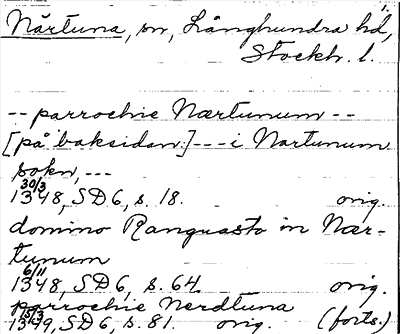 1.
Närtuna, sn, Långhundra hd,
Stockh. l.
-- parrochie Nærtunum --
[på baksidan:] --- i Nartunum
sokn, ---
30/3
1348, SD 6, s. 18. orig.
domino Ranguasto in Nær-
tunum
6/11
1348, SD 6, s. 64. orig.
parrochie Nerdtuna
15/3
1349, SD 6, s. 81. orig. (forts.)